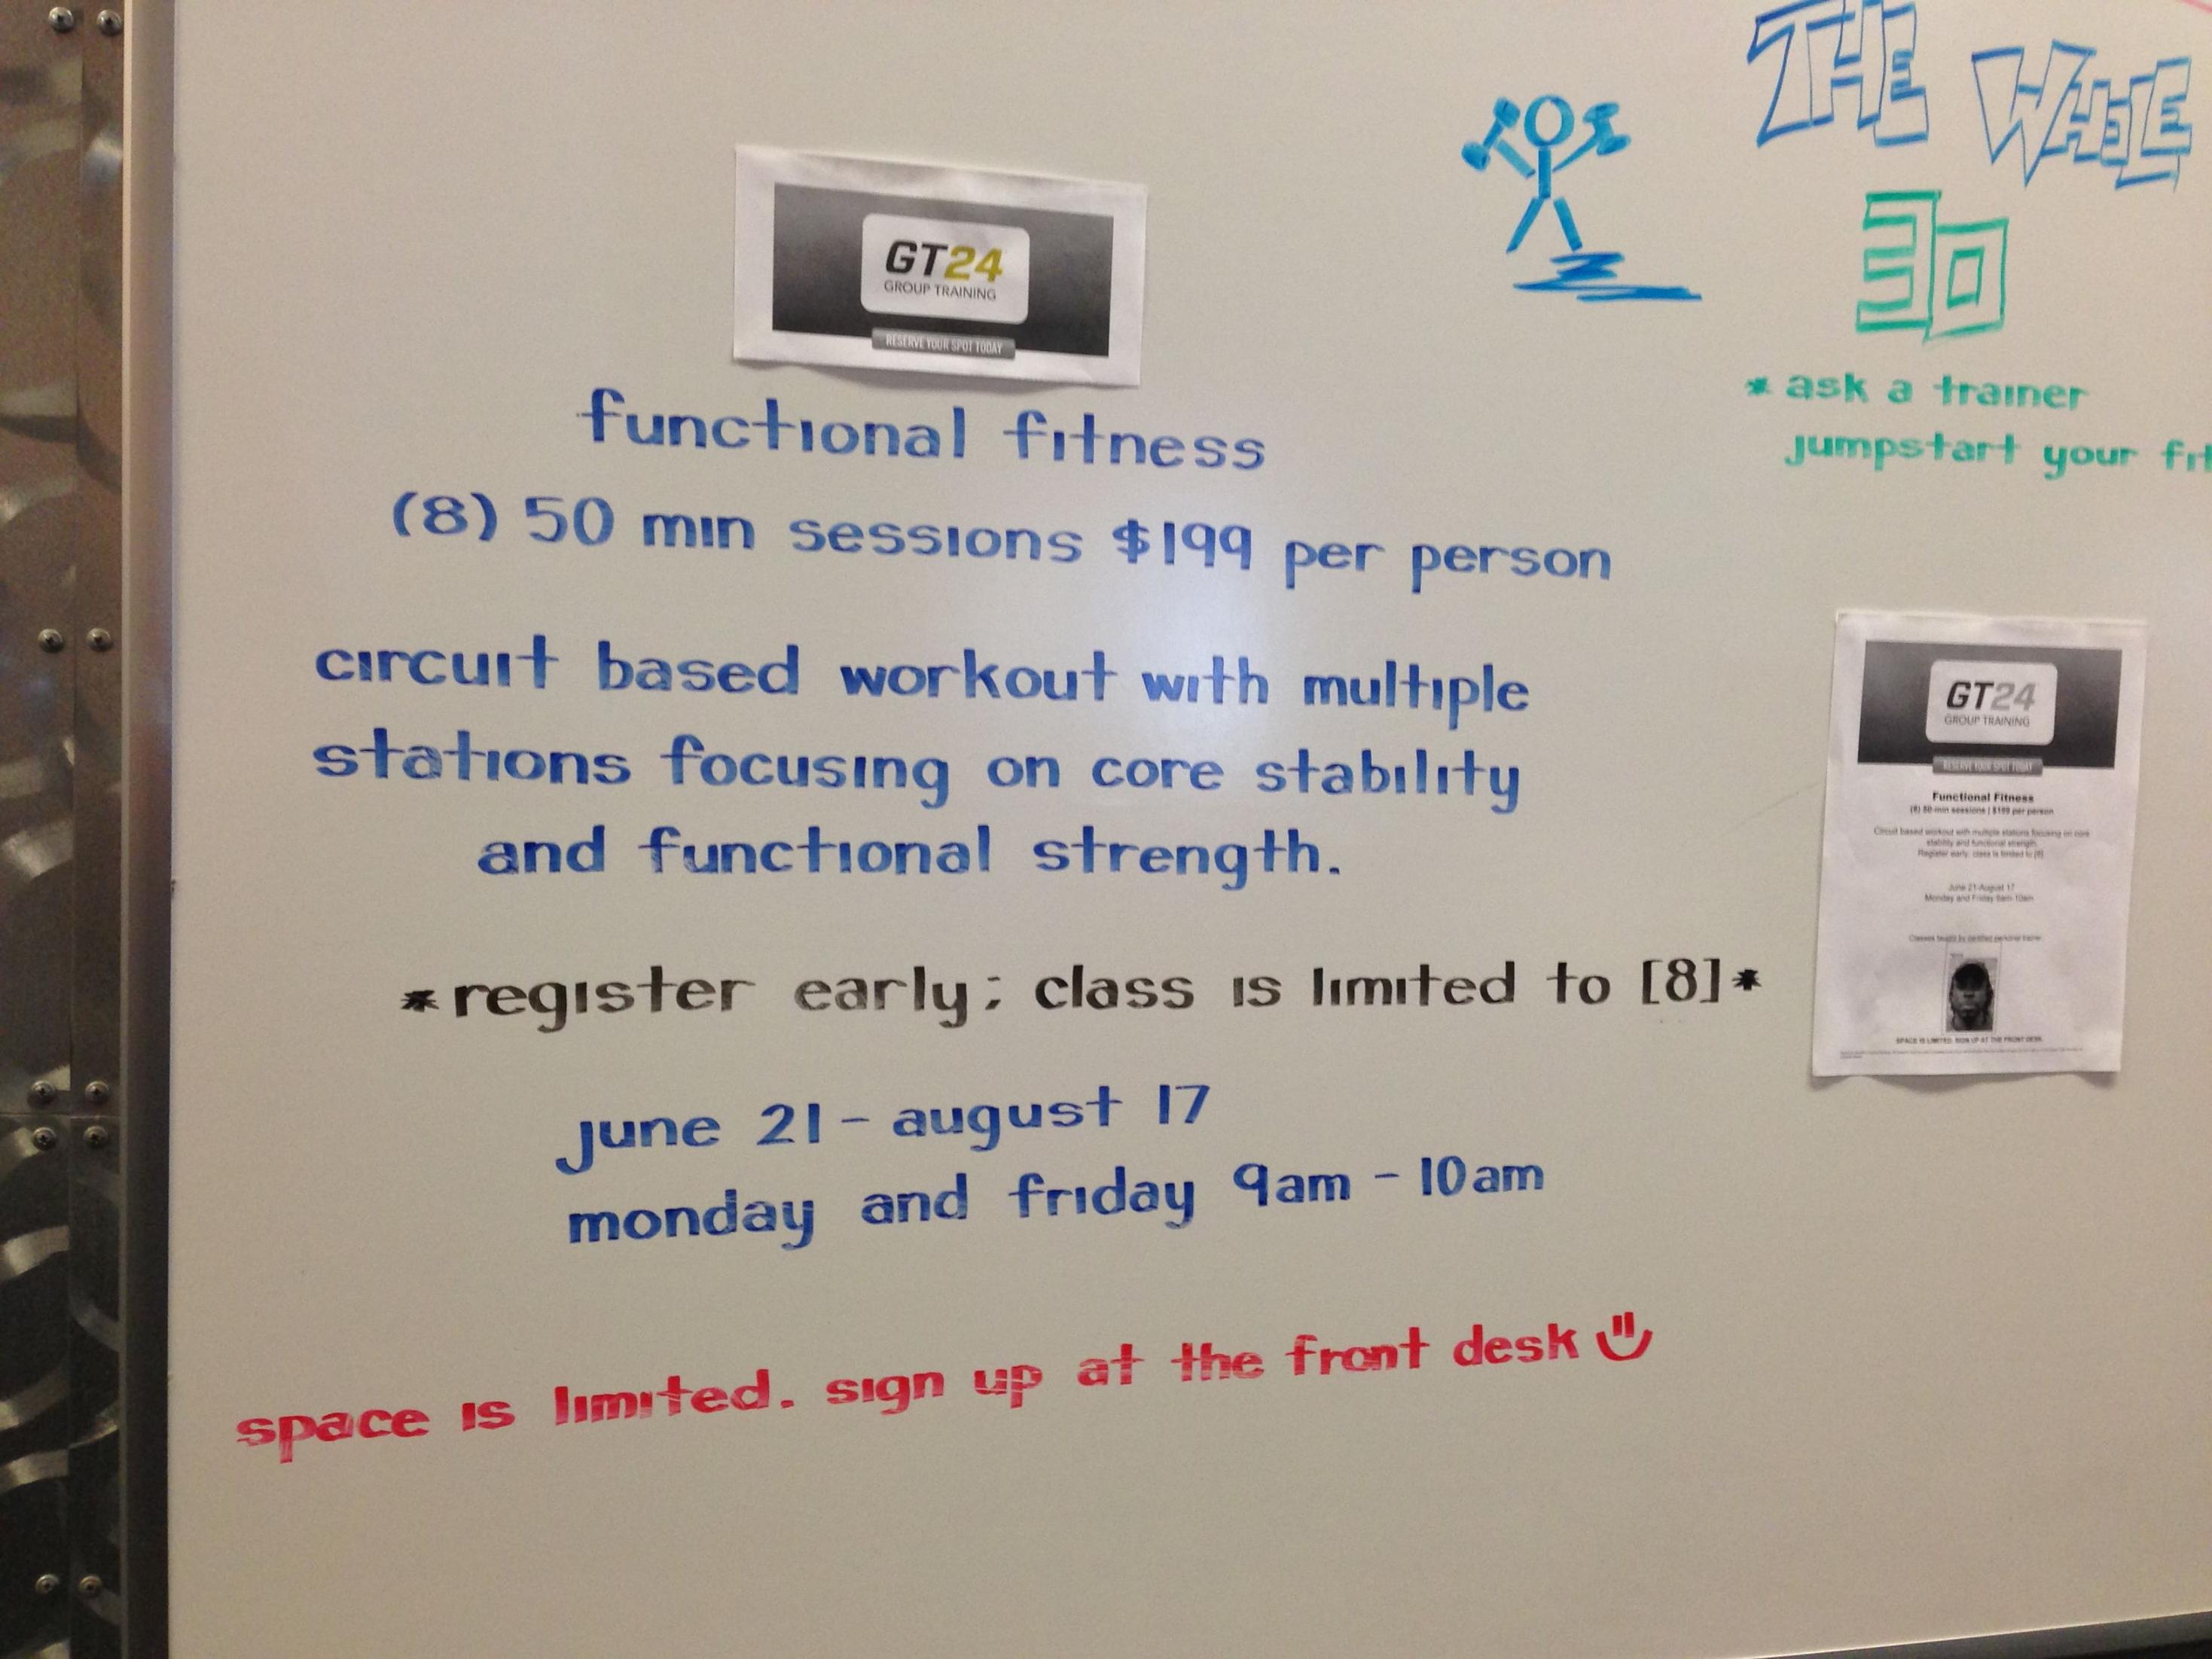 GT24
GROUP TRAINING
RESERVE YOUR SPOT TODAY
functional fitness
(8) 50 min sessions $199 per person
circuit based workout with multiple
stations focusing on core stability
and functional strength.
*register early; class is limited to [8]*
june 21 - august 17
monday and friday 9am - 10am
space is limited. sign up at the front desk
THE WHOLE
30
* ask a trainer
jumpstart your fit
GT24
GROUP TRAINING
RESERVE YOUR SPOT TODAY
Functional Fitness
(8) 50-min sessions | $199 per person
Circuit based workout with multiple stations focusing on core
stability and functional strength.
Register early; class is limited to [8]
June 21-August 17
Monday and Friday 9am-10am
Classes taught by certified personal trainer
SPACE IS LIMITED. SIGN UP AT THE FRONT DESK.